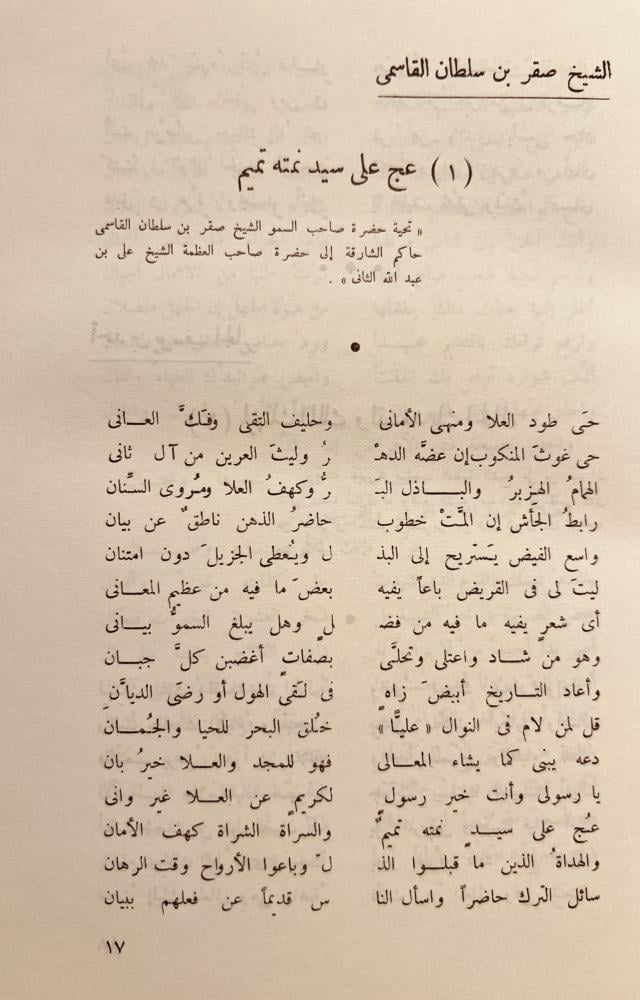 الشيخ صقر بن سلطان القاسمى
( ١ ) عج على سيد نمته تميم
« تحية حضرة صاحب السمو الشيخ صقر بن سلطان القاسمى
حاكم الشارقة إلى حضرة صاحب العظمة الشيخ على بن
عبد الله الثانى » .
حَى طود العلا ومنهى الأمانى وحليف التقى وفكَّ العـــانى
حى غوثَ المنكوب إن عضَّه الدهْـ رُ وليثَ العرين من آل ثانى
الهمامُ الهزبرُ والبـــاذل البَـ رُّ وكهفُ العلا ومُروى السِّنان
رابطُ الجَأش إن المَّتْ خطوب حاضرُ الذهن ناطقٌ عن بيان
واسع الفيض يَستريح إلى البذ ل ويُعطى الجزيلَ دون امتنان
ليتَ لى فى القريض باعاً يفيه بعضَ ما فيه من عظيمِ المعـانى
أى شعرٍ يفيه ما فيه من فضـ لٍ وهل يبلغ السموُّ بيـانى
وهو من شـاد واعتلى وتحلَّى بصفاتٍ أغضبن كلَّ جبـان
وأعاد التـاريخ أبيضَ زاهٍ فى لَقى الهول أو رضَى الديَّانِ
قل لمن لام فى النوال « عليًّا » خُلق البحر للحيا والجُمـان
دعه يبنى كما يشاء المعـالى فهو للمجد والعـلا خيرُ بان
يا رسولى وأنت خير رسولٍ لكريمٍ عن العـلا غير وانى
عُج على سيـدٍ نمته تميمٌ والسراة الشراة كهف الأمان
والهداةُ الذين ما قبلـوا الذ لّ وباعوا الأرواح وقت الرهان
سائل الترك حاضراً واسأل النا س قديماً عن فعلهم ببيان
١٧